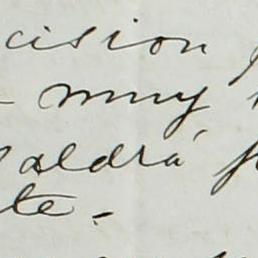 cision
muy
aldrá
te.-